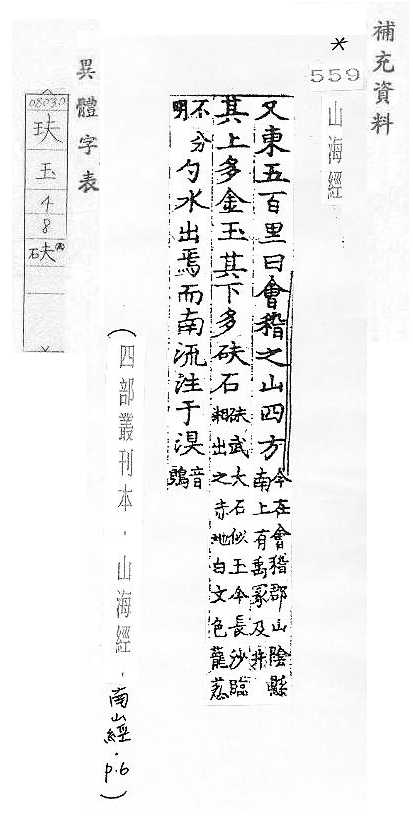 補充資料
*
559
山海經
又東五百里曰會稽之山四方今在會稽郡山陰縣南上有禹冢及井
其上多金玉其下多砆石砆武夫石似玉今長沙臨湘出之赤地白文色蘢葱
不分明勺水出焉而南流注于湨音鶪
(四部叢刊本．山海經．南山經．p.6)
異體字表
玞
玉
4
8
砆